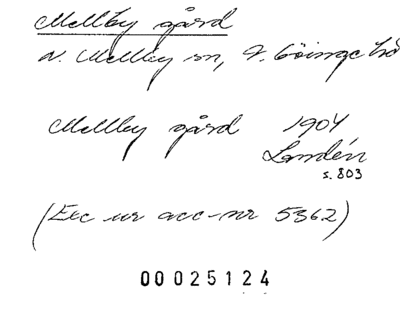 Mellby gård
N. Mellby sn, V. Göinge hd
Mellby gård 1904
Landén
s. 803
(Exc ur acc-nr 5362)
00025124